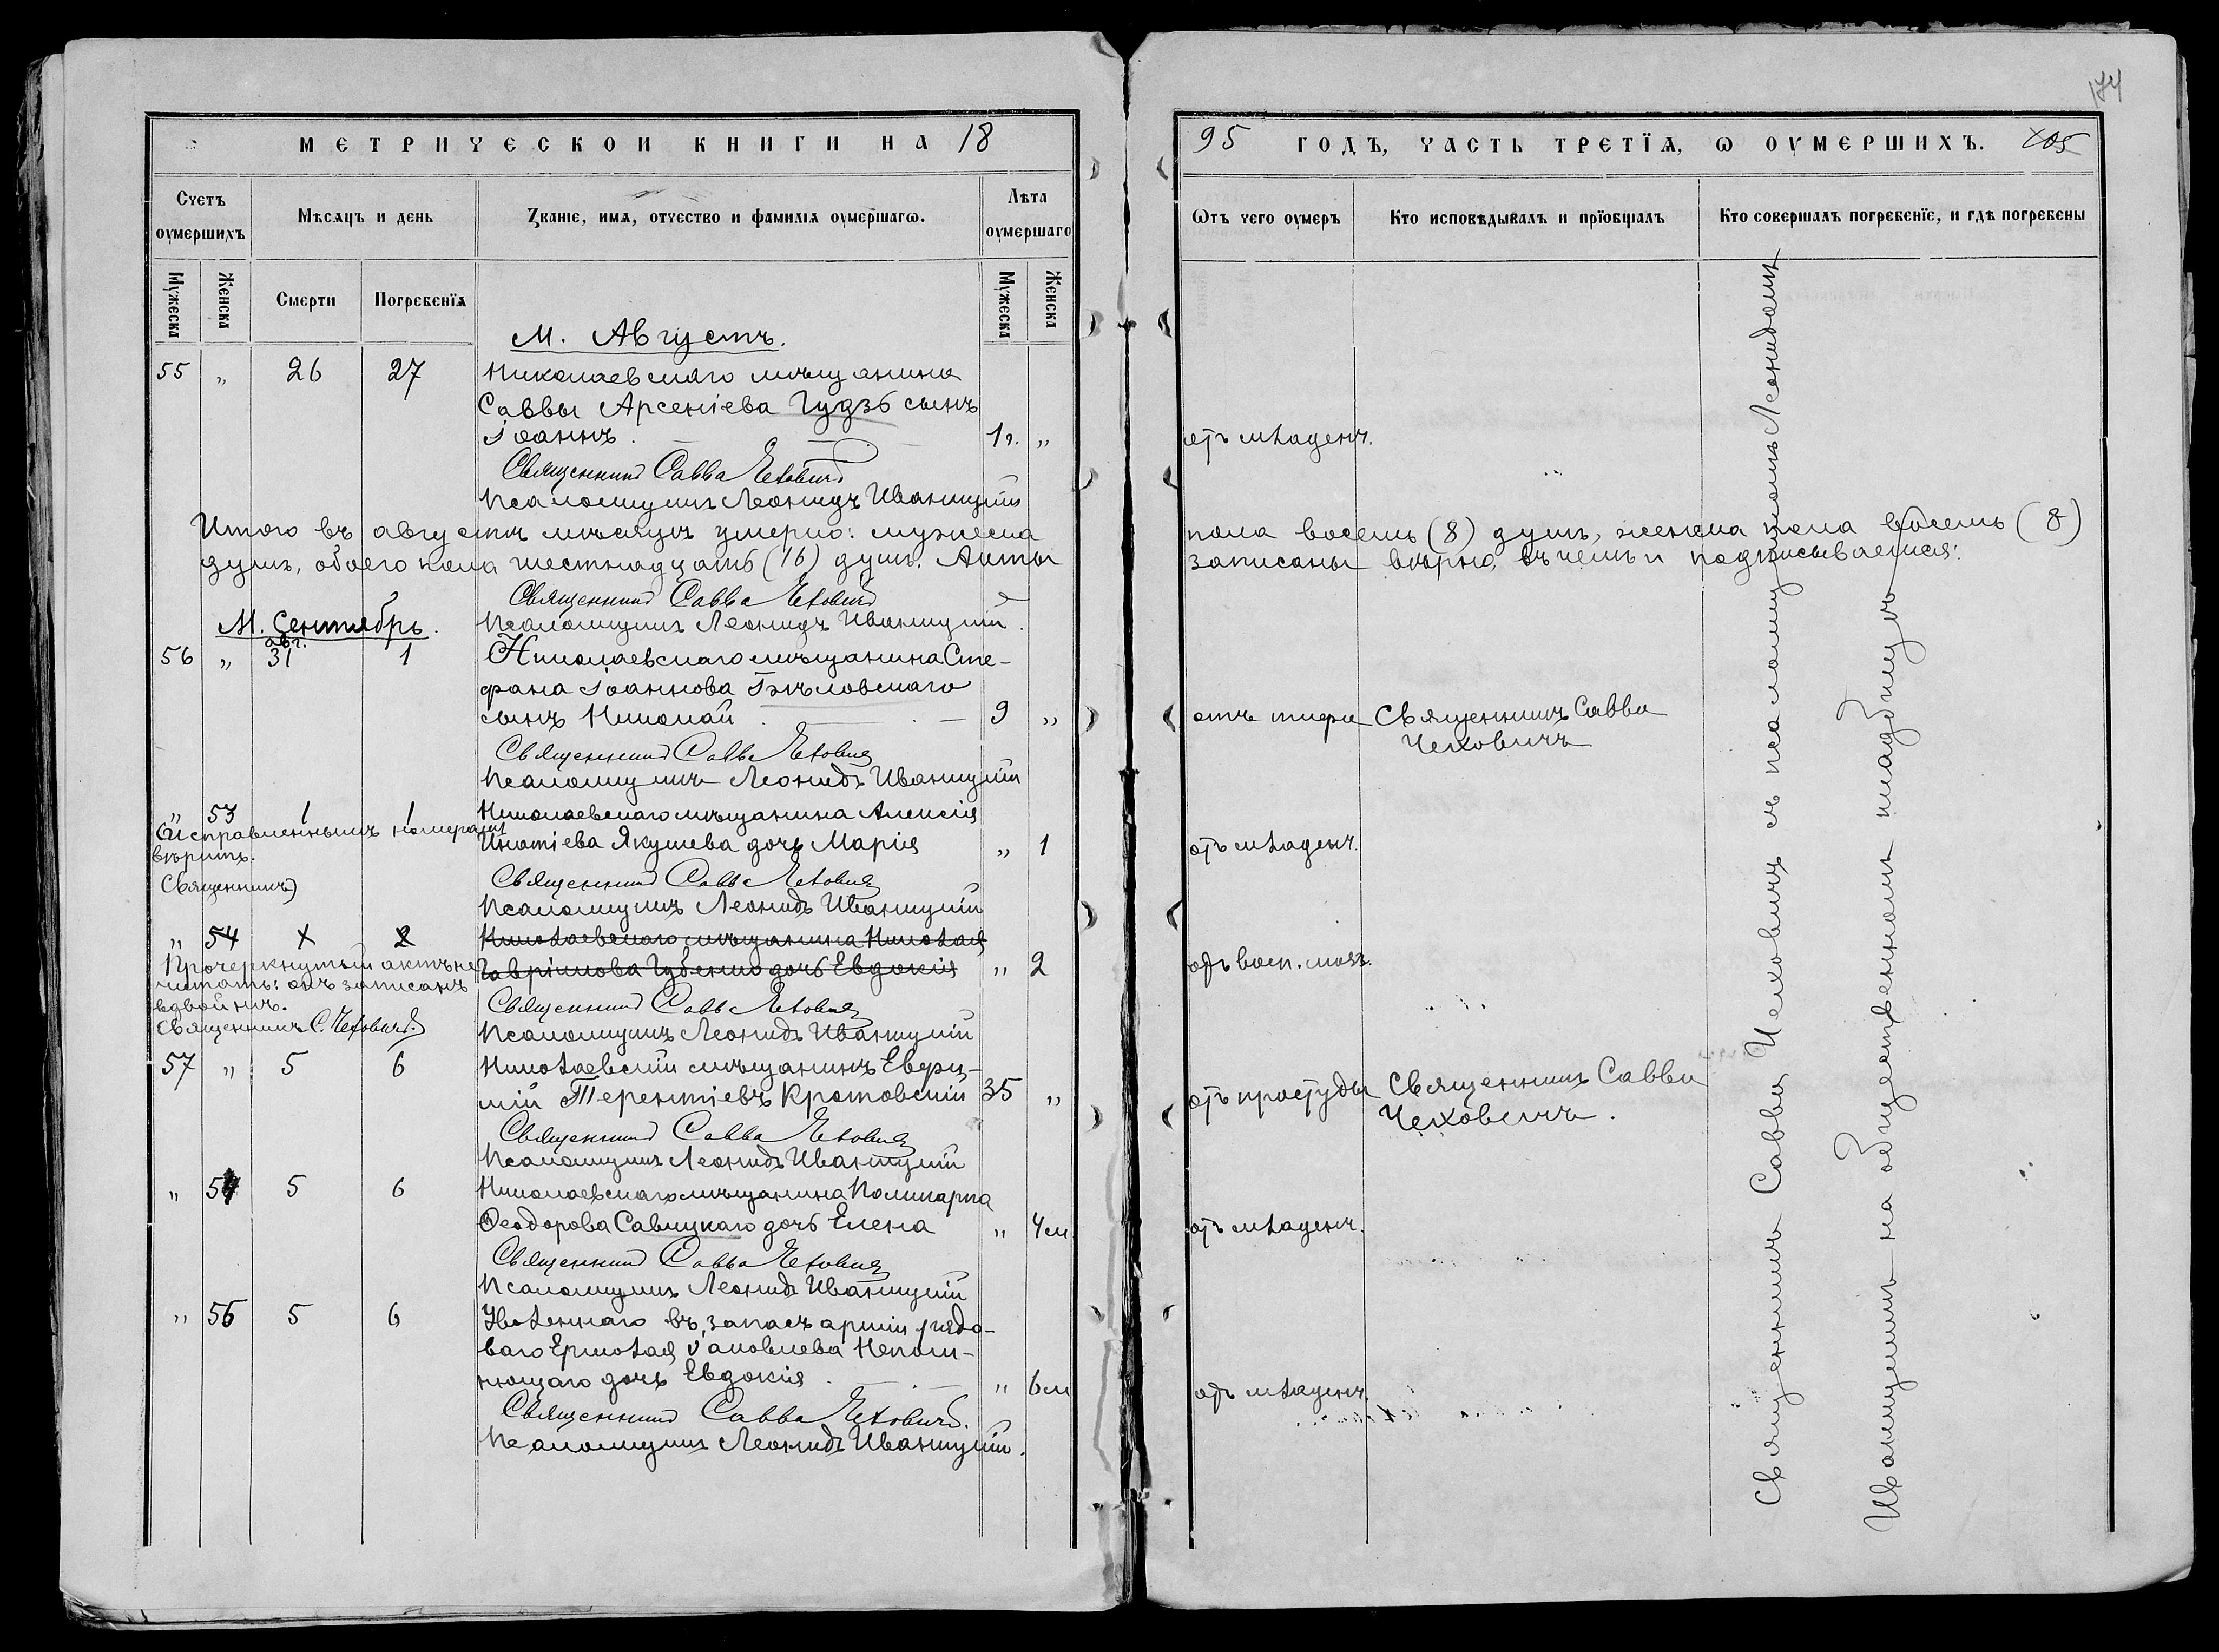 174
МЕТРИЧЕСКОИ КНИГИ НА 18
95 ГОДЪ, ЧАСТЬ ТРЕТЇѦ, Ѡ ОУМЕРШИХЪ. 105
Счетъ оумершихъ
Мѣсѧцъ и день
Званіе, имѧ, отчество и фамиліѧ оумершагѡ.
Лѣта оумершаго
Ѿтъ чего оумеръ
Кто исповѣдывалъ и прїобщалъ
Кто совершалъ погребенїе, и гдѣ погребены
Мужеска
Женска
Смерти
Погребенїѧ
Мужеска
Женска
М. Августъ.
55 „ 26 27 Николаевскаго мѣщанина
Саввы Арсеніева Гудзь сынъ
Іоаннъ. 1г. „ отъ младенч.
Священникъ Савва Чеховичъ
Псаломщикъ Леонидъ Иваницкій
Итого въ августѣ мѣсяцѣ умерло: мужеска пола восемь (8) душъ, женска пола восемь (8)
душъ, обоего пола шестнадцать (16) душъ. Акты записаны вѣрно, въ чемъ и подписываемся:
Священникъ Савва Чеховичъ
Псаломщикъ Леонидъ Иваницкій.
М. Сентябрь.
авг.
56 „ 31 1 Николаевскаго мѣщанина Сте-
фана Іоаннова Бѣловскаго
сынъ Николай 9 „ отъ тифа Священникъ Савва
Чеховичъ
Священникъ Савва Чеховичъ
Псаломщикъ Леонидъ Иваницкій
„ 53 1 1 Николаевскаго мѣщанина Алексія
Игнатіева Якушева дочь Марія „ 1 отъ младенч.
(Исправленнымъ номерамъ
вѣрить.
Священникъ)
Священникъ Савва Чеховичъ
Псаломщикъ Леонидъ Иваницкій
„ 54 2 Николаевскаго мѣщанина Николая
Гавріилова Губенко дочь Евдокія „ 2 отъ восп. мозг.
Прочеркнутый актъ не
читать: онъ записанъ
вдвойнѣ.
Священникъ С. Чеховичъ.
Священникъ Савва Чеховичъ
Псаломщикъ Леонидъ Иваницкій
57 „ 5 6 Николаевскій мѣщанинъ Евфи-
мій Терентіевъ Кротовскій 35 „ отъ простуды Священникъ Савва
Чеховичъ.
Священникъ Савва Чеховичъ
Псаломщикъ Леонидъ Иваницкій
„ 54 5 6 Николаевскаго мѣщанина Поликарпа
Ѳеодорова Савицкаго дочь Елена „ 4м. отъ младенч.
Священникъ Савва Чеховичъ
Псаломщикъ Леонидъ Иваницкій
„ 55 5 6 Уволеннаго въ запасъ арміи рядо-
ваго Ермолая Іаковлева Непом-
нющаго дочь Евдокія „ 6м отъ младенч.
Священникъ Савва Чеховичъ.
Псаломщикъ Леонидъ Иваницкій.
Священникъ Савва Чеховичъ съ псаломщикомъ Леонидомъ
Иваницкимъ на общественномъ кладбищѣ